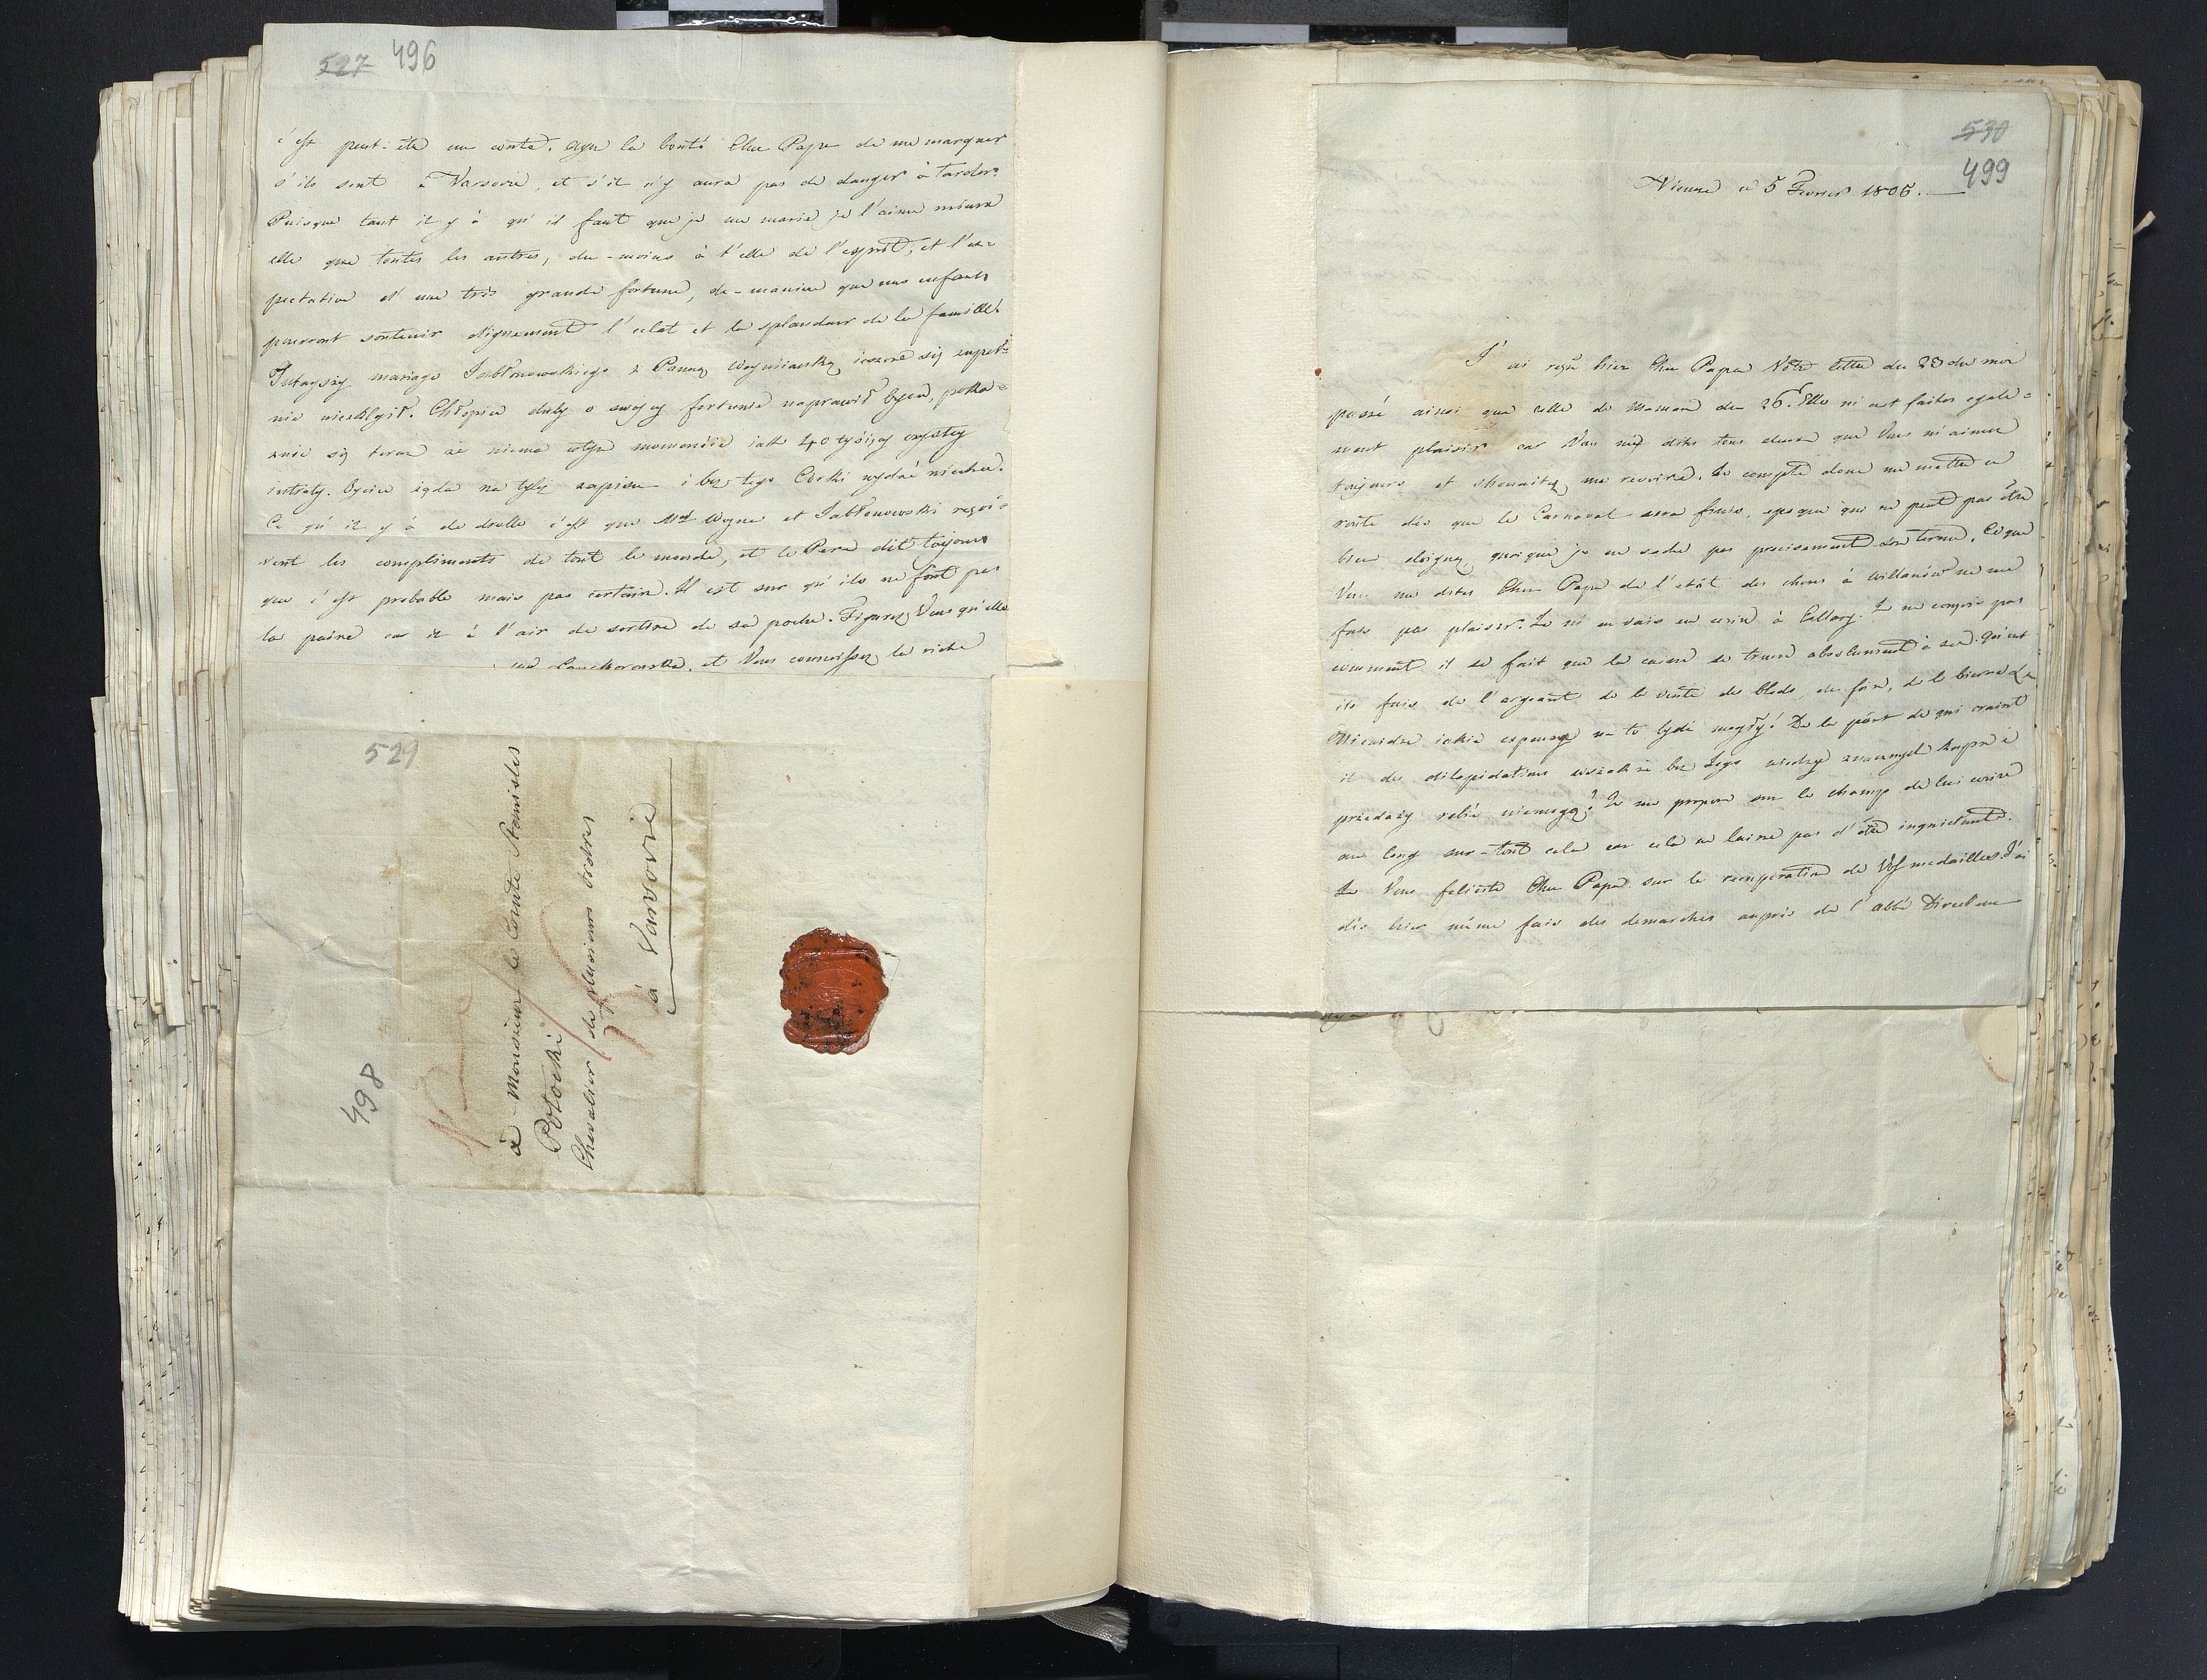 527 496
c'est peut-être un conte. Ayez la bonté Cher Papa de me marquer
s'ils sont à Varsovie, et s'il n'y aura pas de danger à tarder.
Puisque tant il y à qu'il faut que je me marie je l'aime mieux
elle que toutes les autres, du-moins à t'elle de l'esprit, et l'ex=
pectative d'une très grande fortune, de-manière que nos enfants
pourront soutenir dignement l'eclat et la splendeur de la famille.
Tutayszy mariage Jabłonowskiego z Panną Woynianką ieszcze się zupeł=
nie nie
Chłopiec dudy o swoiey fortunie naprawił Oycu, poka=
zuie się teraz że niema w tym momencie iak 40 tysięcy czystey
intraty. Oyciec żąda na tyleż zapisu i bez tego Corki wydać niechce.
Ce qu'il y à de drolle c'est que Md Woyna et Jabłonowski reçoi=
vent les compliments de tout le monde, et le Pere dit toujours
que c'est probable mais pas certain. Il est sur qu'ils ne font pas
la paire car il à l'air de sortire de sa poche. Figurez Vous qu'elle
Lanckoronska, et Vous connoissez le riche
529
498
à Monsieur le Comte Stanislas
Potocki
Chevalier de plusieurs ordres
à Varsovie
530
499
Vienne ce 5 Fevrier 1806.
J'ai reçu hier Cher Papa Votre lettre du 23 du moi
passé ainsi que celle de Maman du 26. Elle m'ont faites egale=
ment plaisir car Vous my dites tous deux que Vous m'aimez
toujours et shouaitez me revoire. Je compte donc me mettre en
route dès que le Carnaval sera finis, epoque qui ne peut pas être
bien eloignez, quoique je ne sache pas precisement son terme. Ce que
Vous me dites Cher Papa de l'etât des choses à Willanów ne me
fais pas plaisir. Je m'en vais en ecrire à Cellary. Je ne conçois pas
comment il se fait que la caisse se trouve absolument à sec. Qu'ont
ils fais de l'argeant de la vente des bleds, de foin, de la bierre &c
Niewidze iakie expensa na to byde mogły! De la part de qui craint
il des dilapidations wszakże bez Jego wiedzy znacznych kupna i
przedaży robić niemogą? Je me propose sur le champs de lui ecrire
au long sur-tout cela car cela ne laisse pas d'être inquietant.
Je Vous felicite Cher Papa sur le recuperation de Vos medailles J'ai
dès hier même fais des demarches auprès de l'abbé Directeur